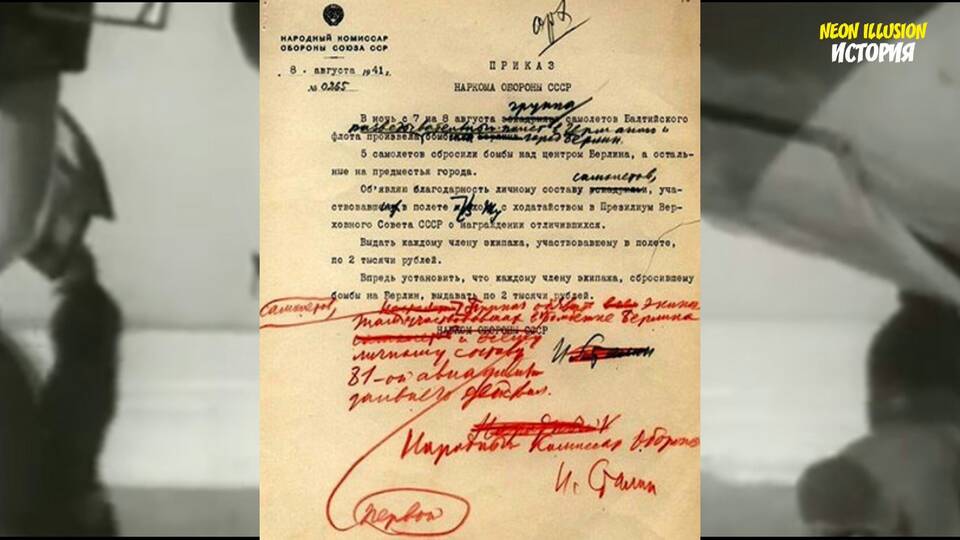 NEON ILLUSION
ИСТОРИЯ
НАРОДНЫЙ КОМИССАР
ОБОРОНЫ СОЮЗА ССР
8 августа 1941г.
№ 0265
ПРИКАЗ
НАРКОМА ОБОРОНЫ СССР
группа
В ночь с 7 на 8 августа эскадрилья самолетов Балтийского
флота произвела
город Берлин.
5 самолетов сбросили бомбы над центром Берлина, а осталь-
ные на предместья города.
самолетов,
Об'являю благодарность личному составу эскадрильи, уча-
в полете с ходатайством в Президиум Вер-
ховного Совета СССР о награждении отличившихся.
Выдать каждому члену экипажа, участвовавшему в полете,
по 2 тысячи рублей.
Впредь установить, что каждому члену экипажа, сбросившему
бомбы на Берлин, выдавать по 2 тысячи рублей.
самолетов,
Приказ экипа
Берлина
НАРКОМ ОБОРОНЫ СССР
и всему
личному составу
И. Сталин
81-ой авиадивизии
дальнего действия.
Народный Комиссар Обороны
И. Сталин
первой